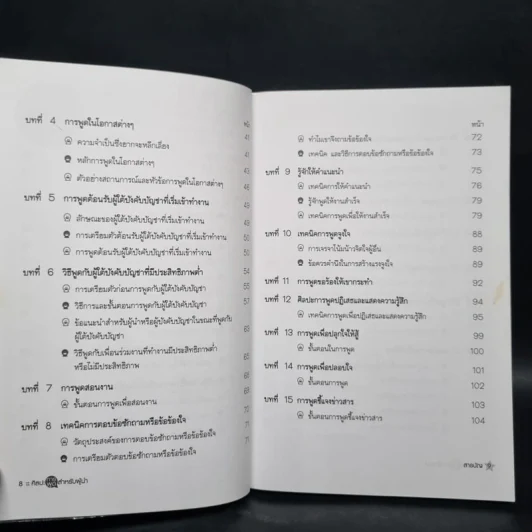 บทที่ 4 การพูดในโอกาสต่างๆ 41
ความจำเป็นซึ่งยากจะหลีกเลี่ยง 41
หลักการพูดในโอกาสต่างๆ
ตัวอย่างสถานการณ์และหัวข้อการพูดในโอกาสต่างๆ
บทที่ 5 การพูดต้อนรับผู้ใต้บังคับบัญชาที่เริ่มเข้าทำงาน
ลักษณะของผู้ใต้บังคับบัญชาที่เริ่มเข้าทำงาน
การเตรียมตัวต้อนรับผู้ใต้บังคับบัญชาที่เริ่มเข้าทำงาน
การพูดต้อนรับผู้ใต้บังคับบัญชาที่เริ่มเข้าทำงาน
บทที่ 6 วิธีพูดกับผู้ใต้บังคับบัญชาที่มีประสิทธิภาพต่ำ
การเตรียมตัวก่อนการพูดกับผู้ใต้บังคับบัญชา
วิธีการและขั้นตอนการพูดกับผู้ใต้บังคับบัญชา
ข้อแนะนำสำหรับผู้นำหรือผู้บังคับบัญชาในขณะที่พูดกับ
ผู้ใต้บังคับบัญชา
วิธีพูดกับเพื่อนร่วมงานที่ทำงานมีประสิทธิภาพต่ำ
หรือไม่มีประสิทธิภาพ
บทที่ 7 การพูดสอนงาน
ขั้นตอนการพูดเพื่อสอนงาน
บทที่ 8 เทคนิคการตอบข้อซักถามหรือข้อข้องใจ
วัตถุประสงค์ของการตอบข้อซักถามหรือข้อข้องใจ
การเตรียมตัวตอบข้อซักถามหรือข้อข้องใจ
8 ศิลปะ สำหรับผู้นำ
หน้า
ทำไมเขาจึงถามข้อข้องใจ 72
เทคนิค และวิธีการตอบข้อซักถามหรือข้อข้องใจ 73
บทที่ 9 รู้จักให้คำแนะนำ 75
เทคนิคการให้คำแนะนำ 76
รู้จักพูดให้งานสำเร็จ 79
เทคนิคการพูดเพื่อให้งานสำเร็จ 79
บทที่ 10 เทคนิคการพูดจูงใจ 88
การเจรจาโน้มน้าวจิตใจผู้อื่น 88
ข้อควรคำนึงในการสร้างแรงจูงใจ 89
บทที่ 11 การพูดขอร้องให้เขากระทำ 92
บทที่ 12 ศิลปะการพูดปฏิเสธและแสดงความรู้สึก 94
เทคนิคการพูดเพื่อปฏิเสธและแสดงความรู้สึก 95
บทที่ 13 การพูดเพื่อปลุกใจให้สู้ 99
ขั้นตอนในการพูด 100
บทที่ 14 การพูดเพื่อปลอบใจ 101
ขั้นตอนการพูด 102
บทที่ 15 การพูดชี้แจงข่าวสาร 103
ขั้นตอนการพูดชี้แจงข่าวสาร 104
สารบัญ